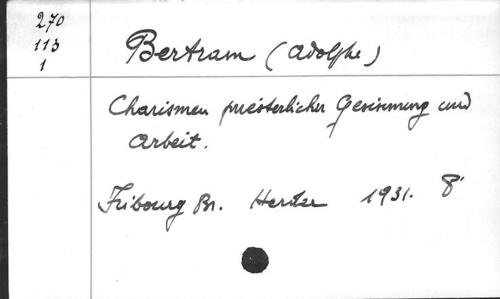 270
113
1
Bertram (Adolphe)
Charismen priesterlicher Gesinnung und
Arbeit.
Fribourg Br. Herder 1931. 8°